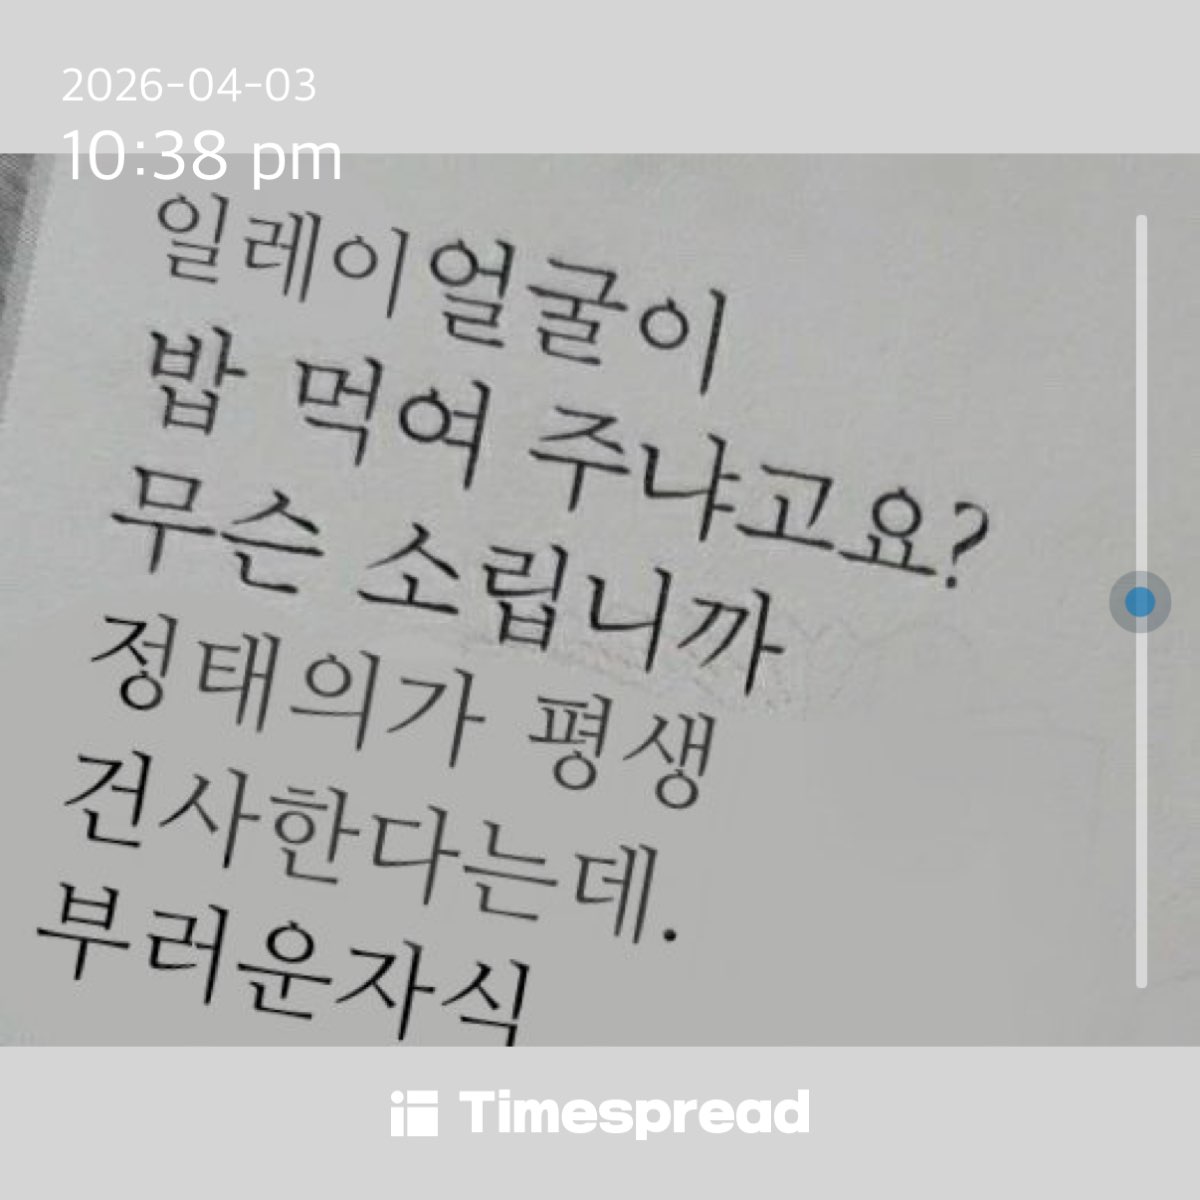 2026-04-03
10:38 pm
일레이얼굴이
밥 먹여 주냐고요?
무슨 소립니까
정태의가 평생
건사한다는데.
부러운자식
Timespread